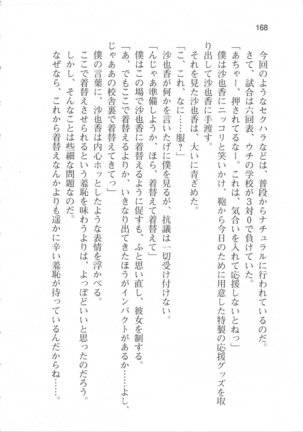 168
今回のようなセクハラなどは、普段からナチュラルに行われているのだ。
さて、試合は六回表、ウチの学校が３対０で負けていた。
「あちゃー、押されてるなー。これは、気合いを入れて応援しないとねっ」
僕は沙也香にニッコリと笑いかけ、鞄から今日のために用意した特製の応援グッズを取
り出して沙也香に手渡す。
それを見た沙也香は、大いに青ざめた。
「こ、これ、なに……服？」
「んじゃあ準備しようか。ほら、着替えて着替えて」
沙也香が何かを言いたげに僕を見るが、抗議は一切受け付けない。
僕はこの場で沙也香に着替えるように促すも、ふと思い直し、彼女を制する。
「あ、でもここで着替えるより か、いきなり出てきたほうがインパクトがあるかー。よし、
じゃああの校舎裏で着替えてきてっ」
僕の言葉に、沙也香は内心ホッとしたような表情を浮かべる。
ここで着替えさせられるという羞恥を味わうよりは、よっぽどいいと思ったのだろう。
しかし、そんなことは些細な問題なのだ。
なぜなら、これから着替えなんかよりも遥かに辛い羞恥が待っているんだからね……。